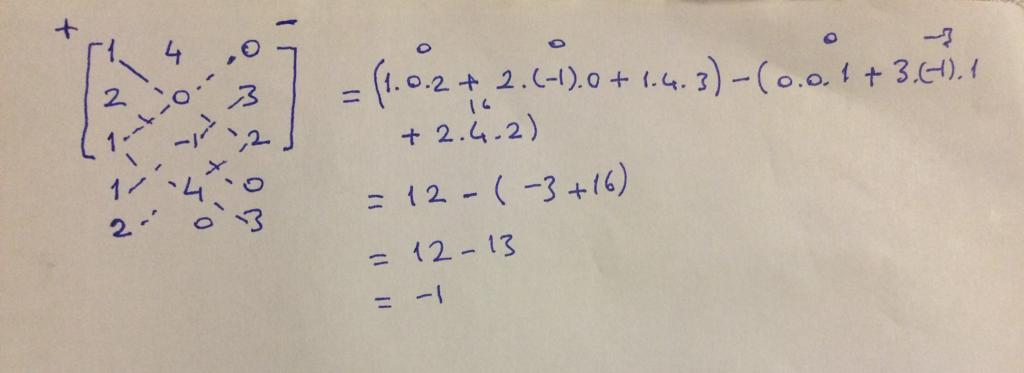 + −
[1 4 0
2 0 3
1 -1 2]
1 4 0
2 0 3
0 0 0 -3
= (1.0.2 + 2.(-1).0 + 1.4.3) - (0.0.1 + 3.(-1).1
16
+ 2.4.2)
= 12 - (-3+16)
= 12 - 13
= -1